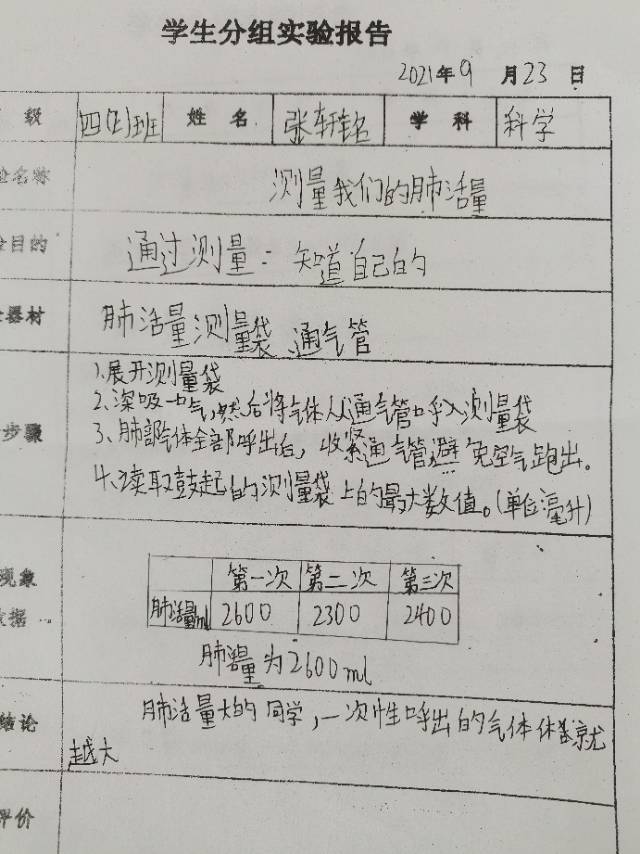 学生分组实验报告
2021年9月23日
级 四(2)班 姓名 张轩铭 学科 科学
验名称 测量我们的肺活量
验目的 通过测量:知道自己的
器材 肺活量测量袋、通气管
步骤
1、展开测量袋
2、深吸一口气,然后将气体从通气管口呼入测量袋
3、肺部气体全部呼出后,收紧通气管避免空气跑出。
4、读取鼓起的测量袋上的最大数值。(单位毫升)
现象
数据
第一次 第二次 第三次
肺活量ml 2600 2300 2400
肺活量为2600ml
结论 肺活量大的同学,一次性呼出的气体体就
越大
评价